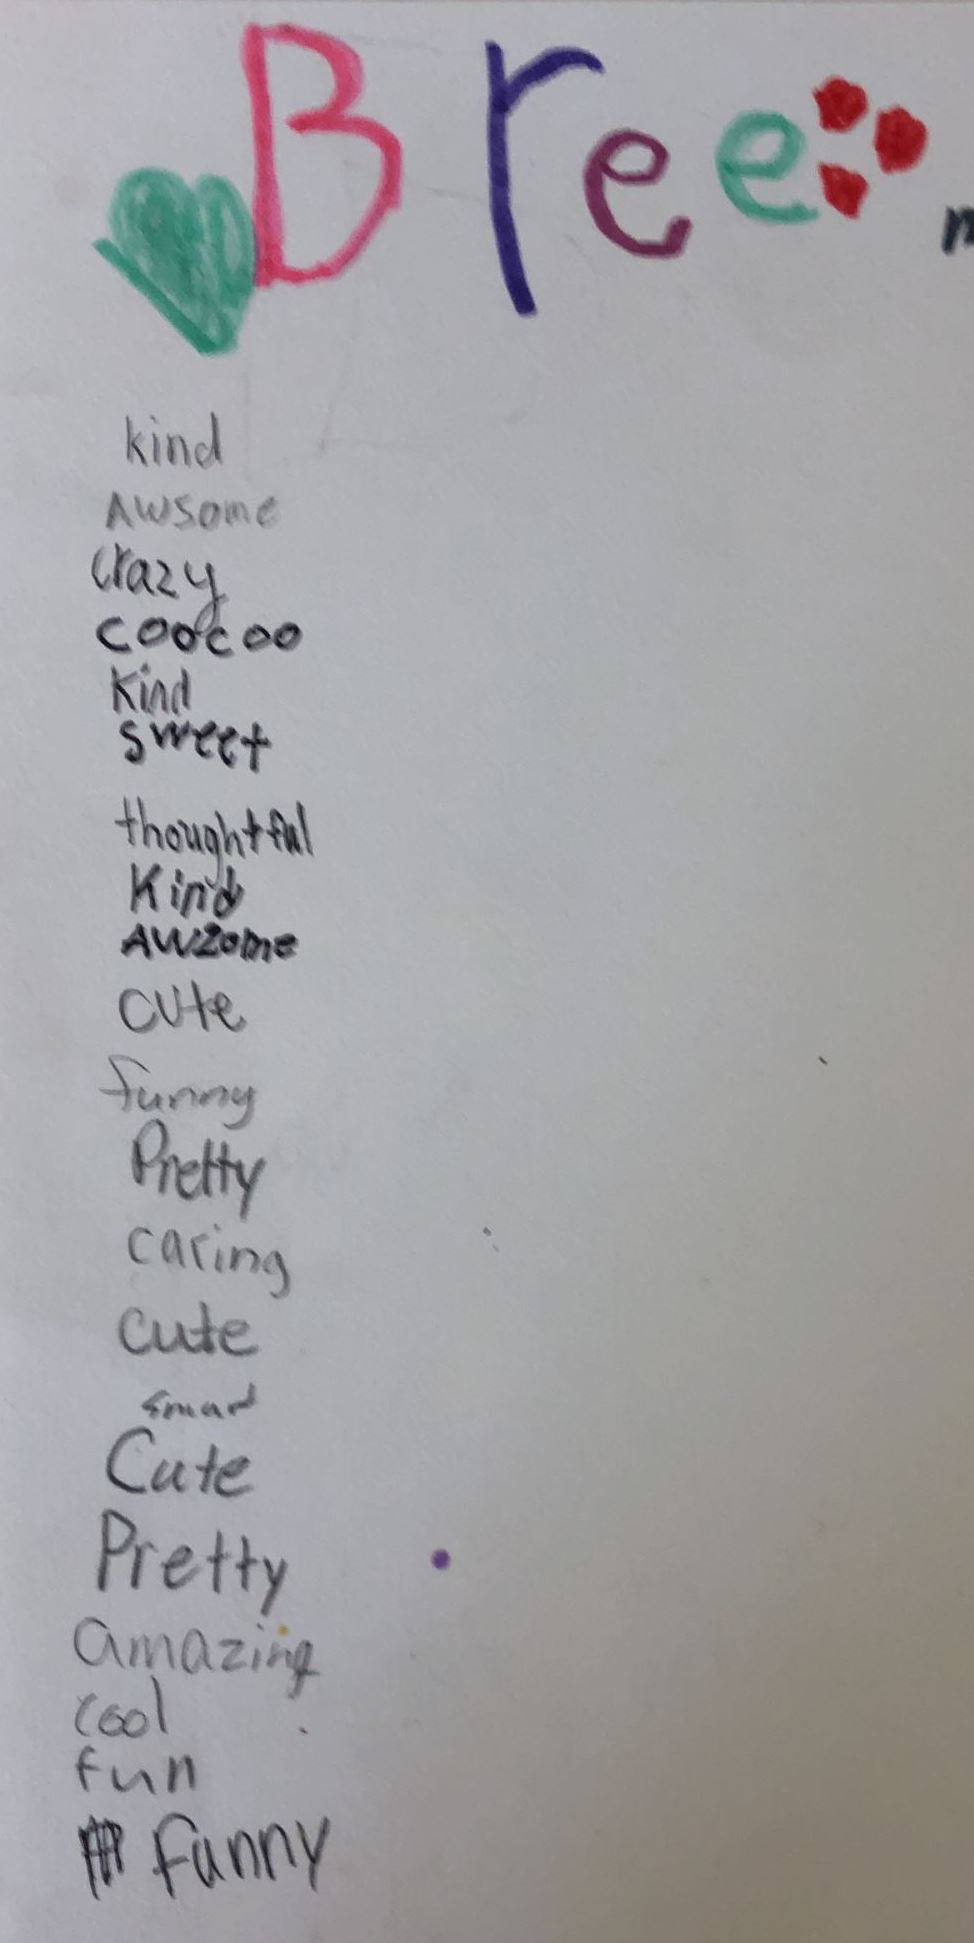 Bree
kind
Awsome
crazy
coocoo
Kind
sweet
thoughtful
Kind
Awzome
cute
funny
Pretty
caring
cute
smart
Cute
Pretty
amazing
cool
fun
funny